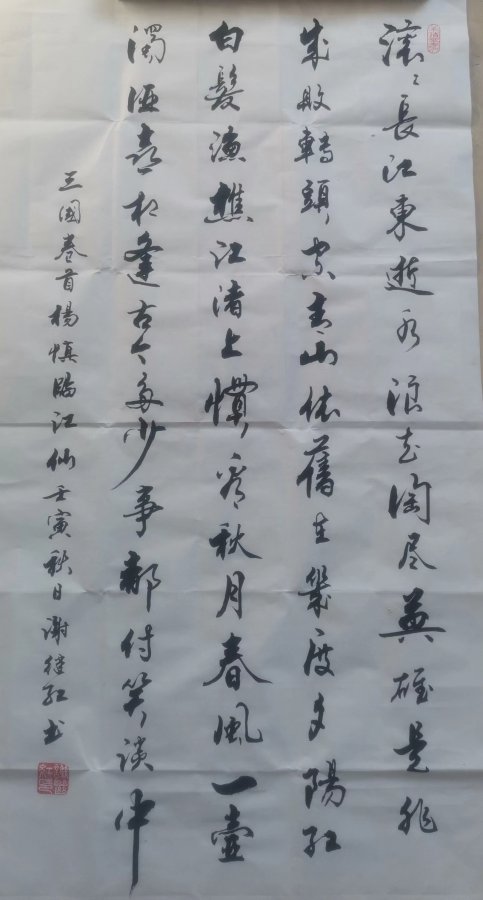 滚〻長江東逝水浪花淘尽英雄是非
成敗轉頭空青山依舊在幾度夕陽红
白髮漁樵江渚上慣看秋月春風一壺
濁酒喜相逢古今多少事都付笑談中
三國卷首楊慎臨江仙壬寅秋日謝继红书